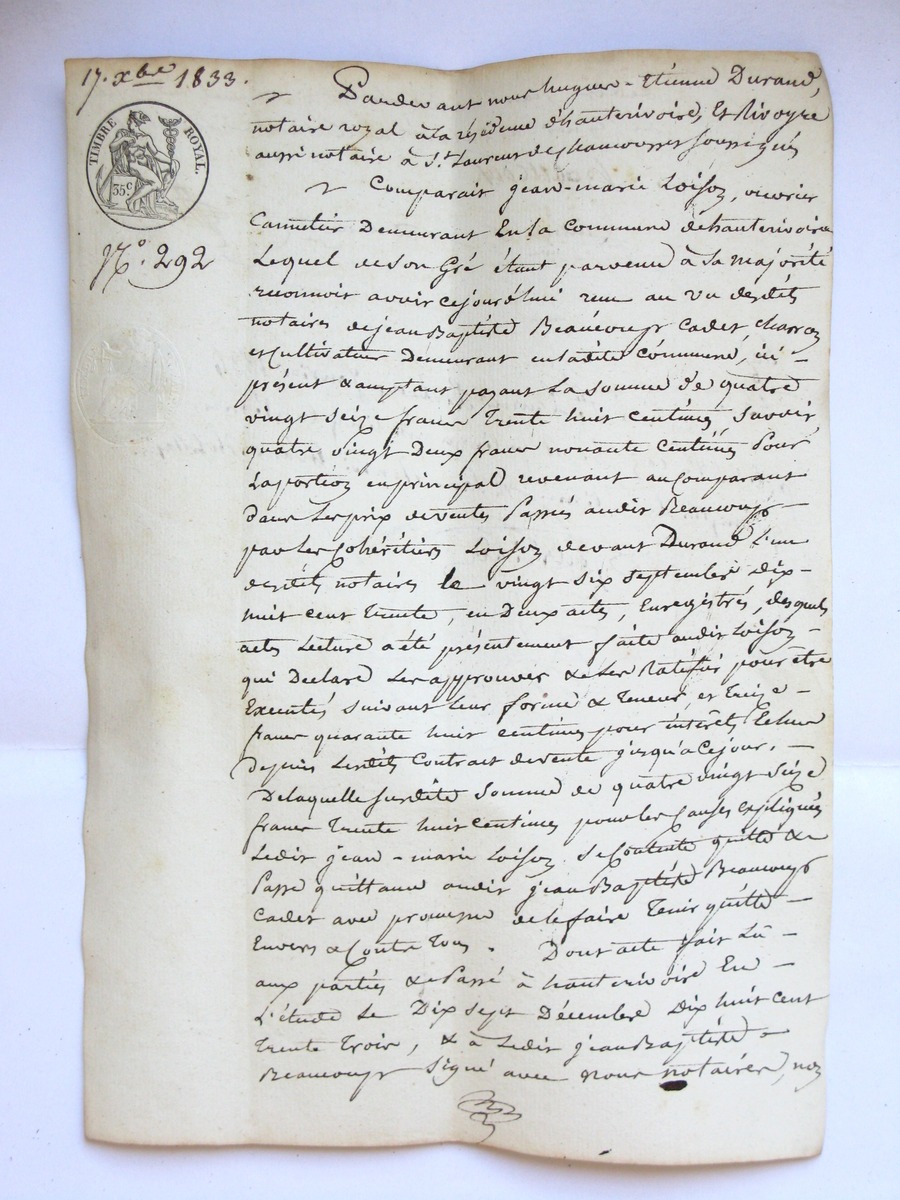 17. xbre 1833.
TIMBRE ROYAL.
35c
No. 292
Pardevant nous hugues-Etienne Durand,
notaire royal à la résidence d'hauterivoire, Et Rivoyre
aussi notaire à St Laurent de chamousset soussignés
Comparait jean-marie Loison, ouvrier
demeurant En la commune d'hauterivoire
Lequel de son Gré étant parvenu à sa majorité
reconnoit avoir cejourd'hui reçu au vu desdits
notaires de jean Baptiste Beaucoup cadet, charron
et Cultivateur Demeurant en ladite commune, ici-
présent & acceptant payant La somme de quatre
vingt seize francs trente huit centimes, savoir
quatre vingt Deux francs nonante centimes Pour
La portion en principal revenant au Comparant
dans Les prix de ventes Passées audit Beaucoup
par Les Cohéritiers Loison devant Durand L'un
desdits notaires le vingt six septembre dix-
huit cent trente, en Deux actes, Enregistrés, desquels
actes Lecture a été présentement faite audit Loison-
qui Declare Les approuver & Les Ratifier pour être
Executés suivant leur forme & teneur, et treize-
francs quarante huit centimes pour intérêts Echus
depuis Lesdits Contrats de vente jusqu'a ce jour.-
De laquelle susdite somme de quatre vingt seize
francs trente huit centimes pour les causes Expliquées
Ledit jean-marie Loison se Contente quitte &
Passe quittance audit jean Baptiste Beaucoup
cadet avec promesse de le faire tenir quitte-
Envers & Contre tous. Dont acte fait Lu-
aux parties & Passé à hauterivoire En-
L'étude Le Dix sept Décembre Dix huit cent
trente trois, & à Ledit jean Baptiste-
Beaucoup signé avec nous notaires, non